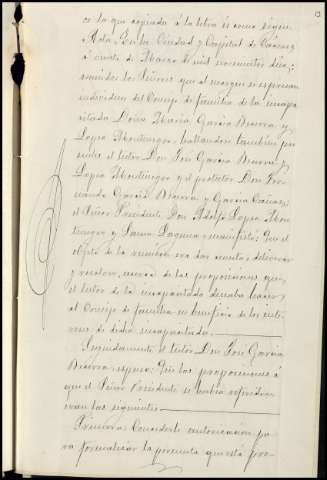 13
es la que copiada á la letra es como sigue:
Acta. En la Ciudad y Capital de Cáceres,
á cinco de Marzo de mil novecientos diez;
reunidos los Señores que al margen se expresan
individuos del Consejo de familia de la incapa-
citada Doña María García Becerra y
Lopez Montenegro, hallandose tambien pre-
sente el tutor Don José García Becerra y
Lopez Montenegro y el protector Don Fer-
nando García Becerra y García
el Señor Presidente Don Adolfo Lopez Mon-
tenegro y manifestó: Que el
objeto de la reunion era dar cuenta, deliberar
y resolver, acerca de las proposiciones que,
el tutor de la incapacitada deseaba hacer
al Consejo de familia en beneficio de los inte-
reses de dicha incapacitada.
Seguidamente el tutor Don José García
Becerra expuso: Que las proposiciones á
que el Señor Presidente se habia referido
eran las siguientes
Primera: Concederle autorizacion pa-
ra formalizar la permuta que esta pro-